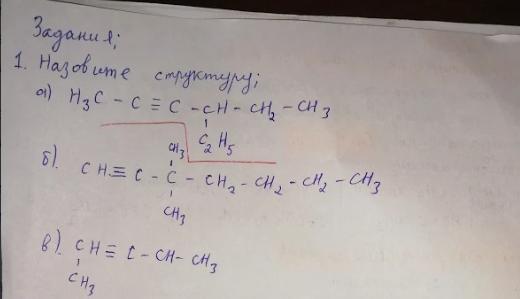 Задания;
1. Назовите структуру;
а) H3C - C ≡ C - CH - CH2 - CH3
C2H5
CH3
б). CH ≡ C - C - CH2 - CH2 - CH2 - CH3
CH3
в). CH ≡ C - CH - CH3
CH3